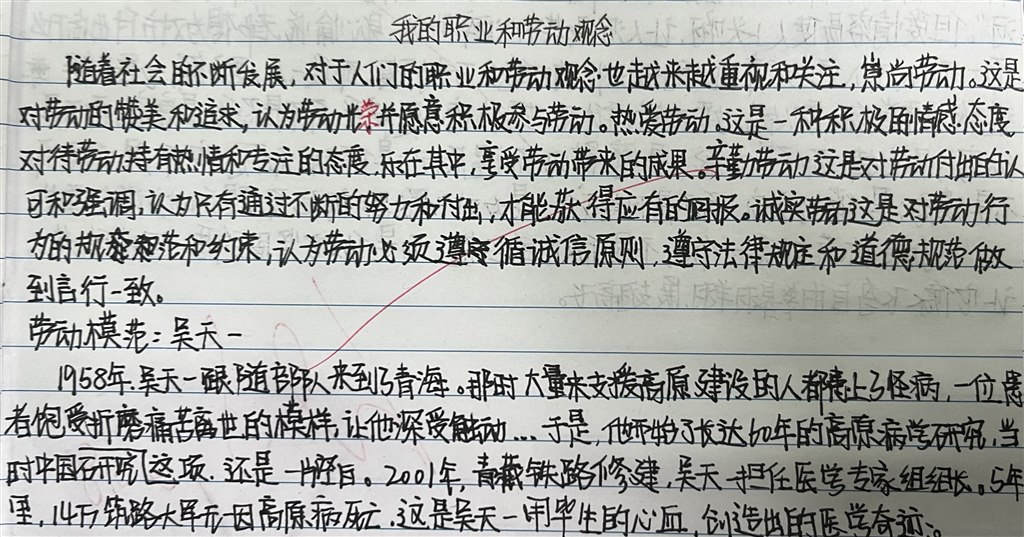 我的职业和劳动观念
随着社会的不断发展,对于人们的职业和劳动观念也越来越重视和关注,崇尚劳动。这是
对劳动的赞美和追求,认为劳动光荣并愿意积极参与劳动。热爱劳动,这是一种积极的情感态度
对待劳动持有热情和专注的态度,乐在其中,享受劳动带来的成果。辛勤劳动这是对劳动付出的认
可和强调,认为只有通过不断的努力和付出,才能获得应有的回报。诚实劳动这是对劳动行
为的规范和约束,认为劳动必须遵循诚信原则,遵守法律规定和道德规范做
到言行一致。
劳动模范:吴天一
1958年,吴天一跟随部队来到了青海。那时大量来支援高原建设的人都患上了怪病,一位患
者饱受折磨痛苦离世的模样,让他深受触动...于是,他开始了长达60年的高原病学研究,当
时中国在这项,还是一片空白。2001年,青藏铁路修建,吴天一担任医学专家组组长。5年
里,14万筑路大军无一因高原病死亡,这是吴天一用毕生的心血,创造出的医学奇迹。